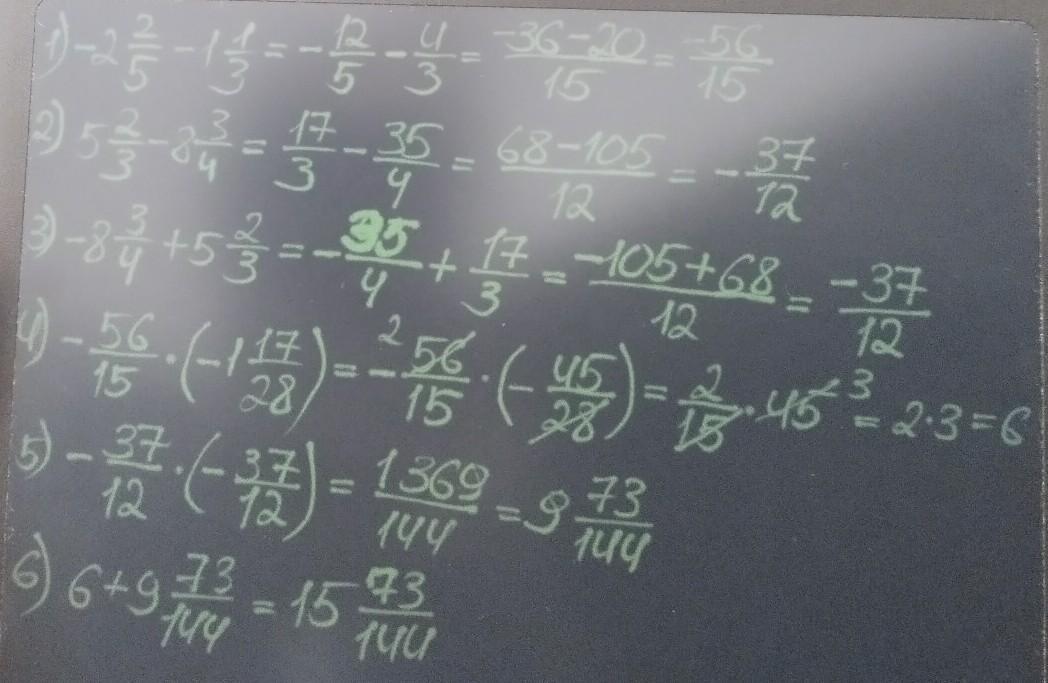 1) -2 2/5 - 1 1/3 = - 12/5 - 4/3 = (-36-20)/15 = -56/15
2) 5 2/3 - 8 3/4 = 17/3 - 35/4 = (68-105)/12 = - 37/12
3) -8 3/4 + 5 2/3 = - 35/4 + 17/3 = (-105+68)/12 = -37/12
4) - 56/15 · (-1 17/28) = - 2 56/15 · (- 45/28) = 2/15 · 45 3 = 2·3 = 6
5) - 37/12 · (- 37/12) = 1369/144 = 9 73/144
6) 6 + 9 73/144 = 15 73/144